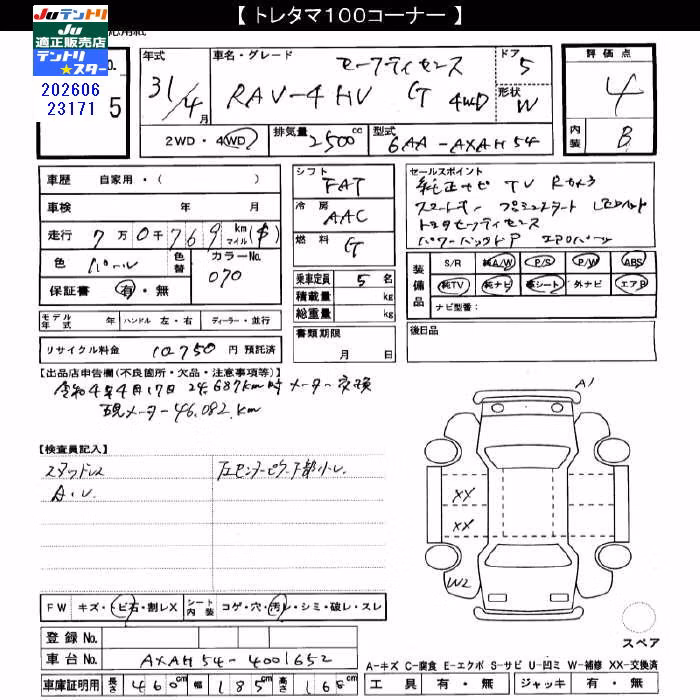 【 トレタマ100コーナー 】
Juテントリ
Ju
適正販売店
テントリ
★スター
202606
23171
No.
5
年式
31/4 月
車名・グレード
セーフティセンス
RAV-4 HV G 4WD
ドア
5
形状
W
評価点
4
内装
B
2WD・4WD
排気量 2500 cc
型式 6AA-AXAH54
車歴 自家用・( )
車検 年 月
走行 7万0千769 km マイル($)
色 パール
色替
カラーNo. 070
保証書 有・無
モデル年式 年 ハンドル 左・右 ディーラー・並行
リサイクル料金 10750 円 預託済
シフト FAT
冷房 AAC
燃料 G
乗車定員 5 名
積載量 kg
総重量 kg
書類期限
月 日
セールスポイント
純正ナビ TV Rカメラ
スマートキー プッシュスタート LEDヘッド
トヨタセーフティセンス
パワーバックドア エアロパーツ
装備品
S/R 純A/W P/S P/W ABS
純TV 純ナビ 革シート 外ナビ エアB
ナビ型番:
後日品
【出品店申告欄(不良箇所・欠品・注意事項等)】
令和4年4月17日 24,687km時 メーター交換
現メーター46,082km
【検査員記入】
スタッドレス
A・U
左センターピラー下部小U
FW キズ・トビ石・割レX
シート内装 コゲ・穴・汚レ・シミ・破レ・スレ
登録No.
車台No. AXAH54-4001652
車庫証明用 長さ 460cm 幅 185cm 高さ 168cm
A1
XX
XX
W2
スペア
A-キズ C-腐食 E-エクボ S-サビ U-凹ミ W-補修 XX-交換済
工具 有・無 ジャッキ 有・無